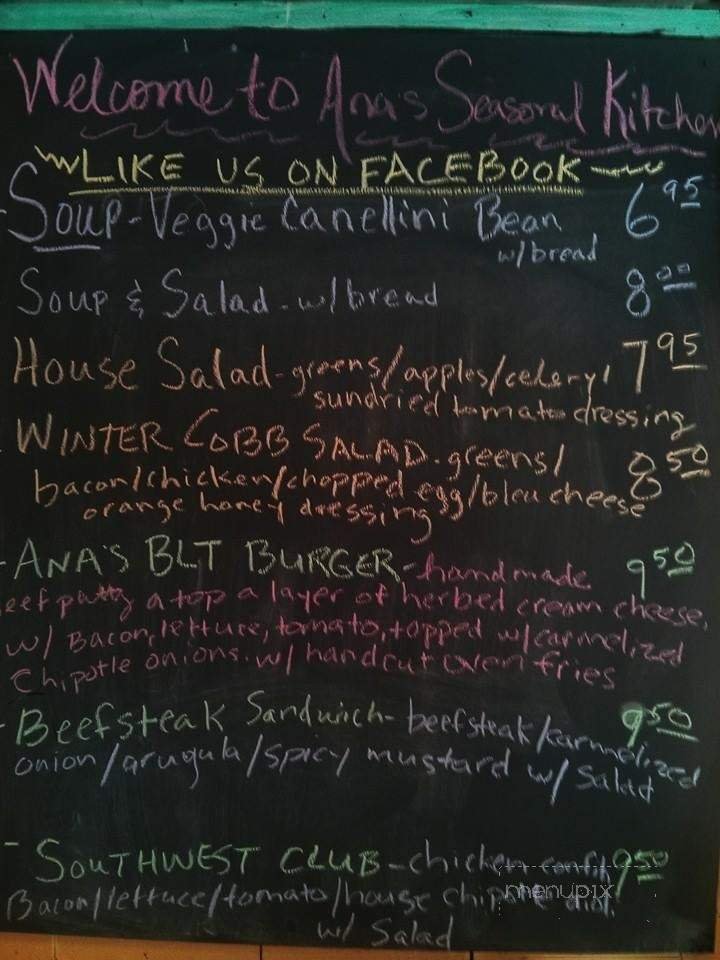 Welcome to Ana's Seasonal Kitchen
LIKE US ON FACEBOOK
Soup - Veggie Canellini Bean 6 95
w/bread
Soup & Salad - w/bread 8 00
House Salad - greens/apples/celery/ 7 95
sundried tomato dressing
WINTER COBB SALAD - greens/ 8 50
bacon/chicken/chopped egg/bleu cheese
orange honey dressing
- ANA'S BLT BURGER - handmade 9 50
eef patty a top a layer of herbed cream cheese,
w/ Bacon, lettuce, tomato, topped w/carmelized
Chipotle onions. w/ handcut oven fries
- Beefsteak Sandwich - beefsteak/carmelized 9 50
onion/arugula/spicy mustard w/ Salad
- SOUTHWEST CLUB - chicken confit/ 9 50
Bacon/lettuce/tomato/house Chipotle aioli
w/ Salad
menupix